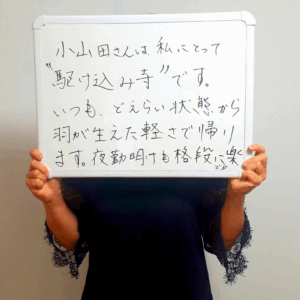 小山田さんは私にとって
"駆け込み寺"です。
いつも、どえらい状態から
羽が生えた軽さで帰り
ます。夜勤明けも格段に楽